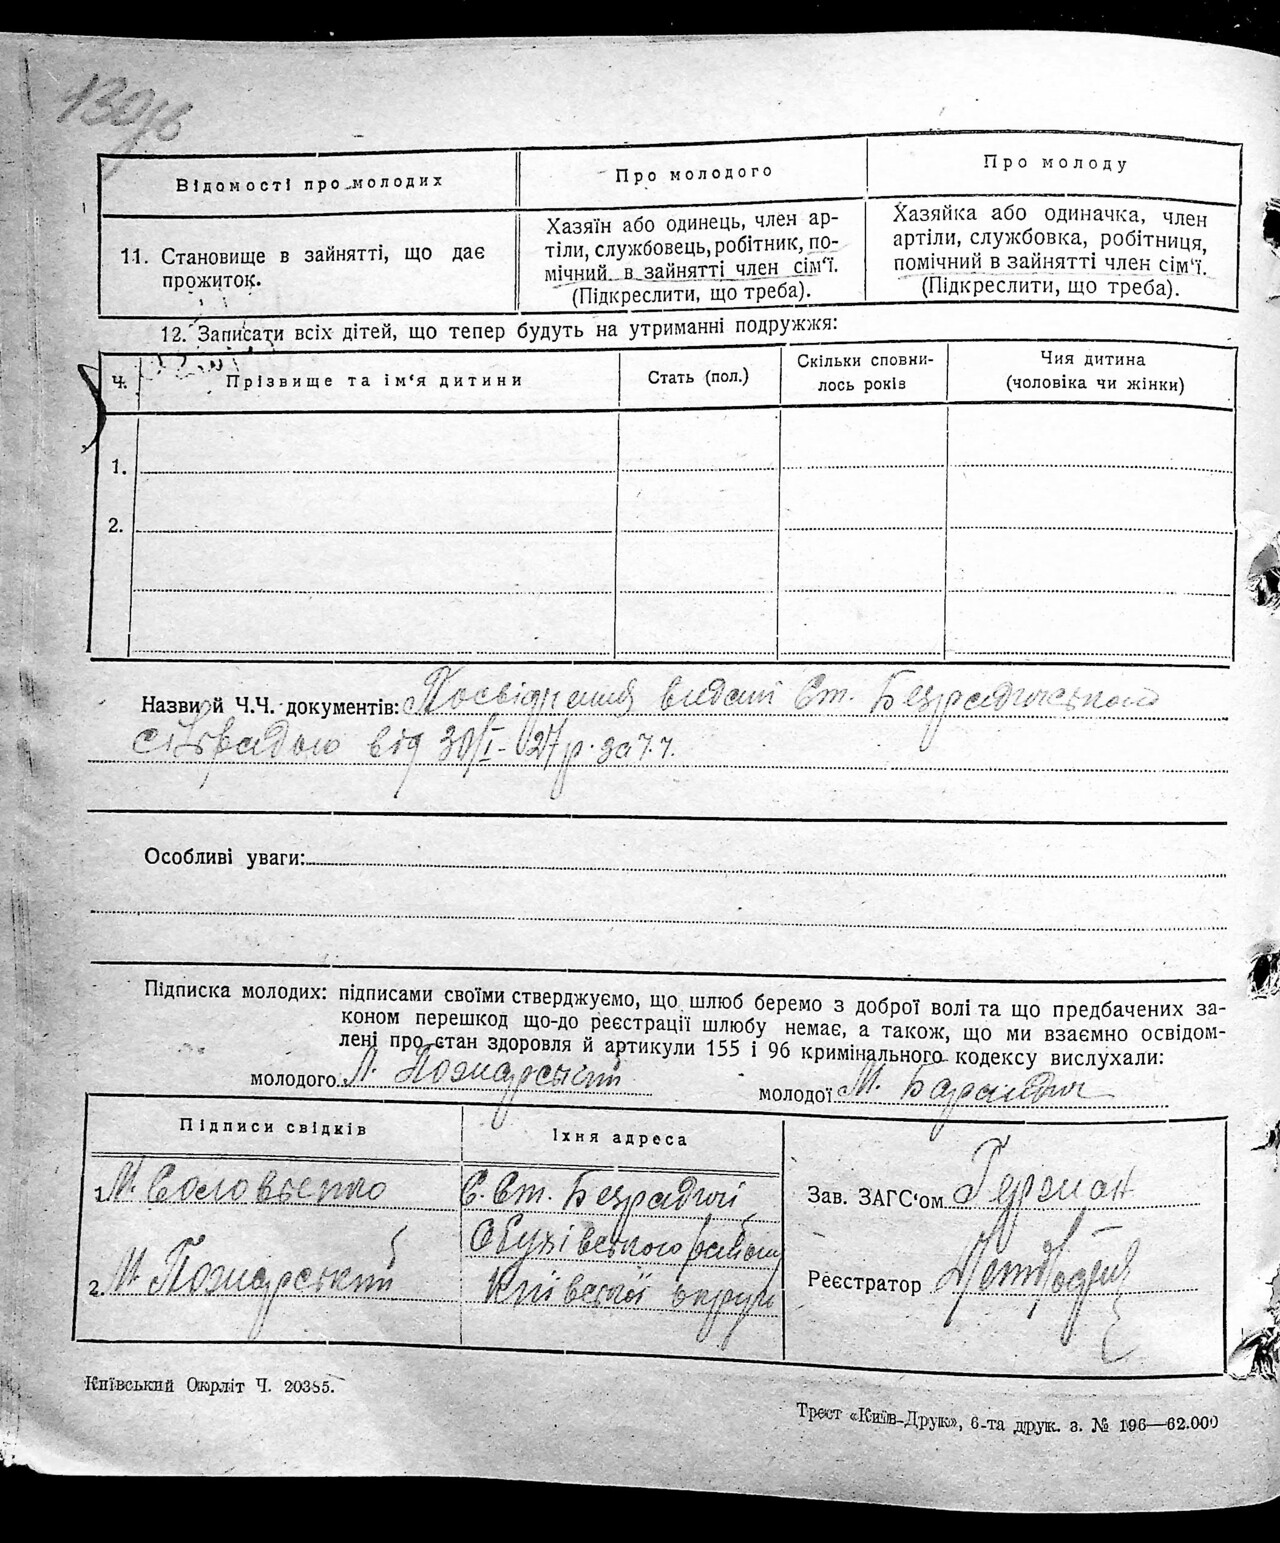 130зв
Відомості про молодих
Про молодого
Про молоду
11. Становище в зайнятті, що дає
прожиток.
Хазяїн або одинець, член ар-
тіли, службовець, робітник, по-
мічний в зайнятті член сім'ї.
(Підкреслити, що треба).
Хазяйка або одиначка, член
артіли, службовка, робітниця,
помічний в зайнятті член сім'ї.
(Підкреслити, що треба).
12. Записати всіх дітей, що тепер будуть на утриманні подружжя:
Ч.
Прізвище та ім'я дитини
Стать (пол.)
Скільки сповни-
лось років
Чия дитина
(чоловіка чи жінки)
1.
2.
Назви й Ч.Ч. документів: Посвідчення видані Ст. Безрадичською
сільрадою від 30/I-27 р. за ч.ч.
Особливі уваги:
Підписка молодих: підписами своїми стверджуємо, що шлюб беремо з доброї волі та що предбачених за-
коном перешкод що-до реєстрації шлюбу немає, а також, що ми взаємно освідом-
лені про стан здоровля й артикули 155 і 96 кримінального кодексу вислухали:
молодого Пожарський молодої М.
Підписи свідків
Їхня адреса
1. М. Соловьенко
С. Ст. Безрадичі
Обухівського району
2. М. Пожарський
Київської округи
Зав. ЗАГС'ом Герман
Реєстратор
Київський Окрліт Ч. 20385.
Трест «Київ-Друк», 6-та друк. з. № 196—62.000